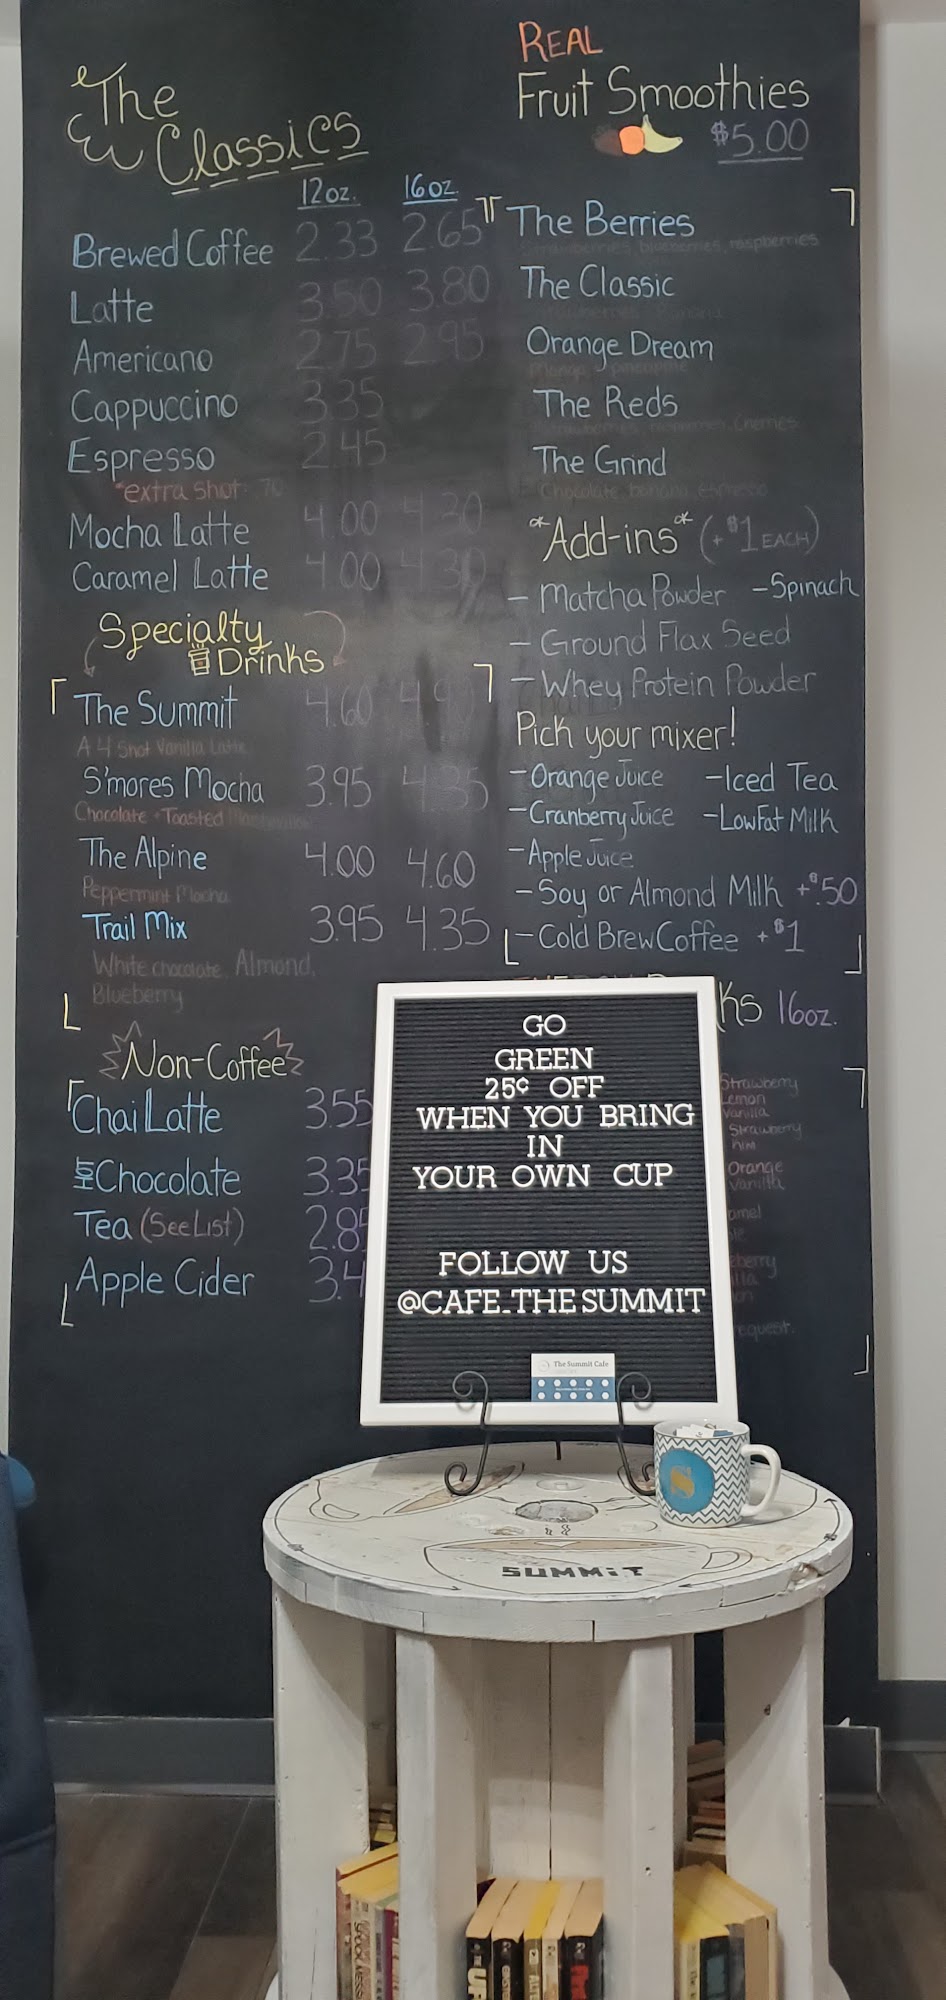 The
Classics
12oz. 16oz.
Brewed Coffee 2.33 2.65
Latte 3.50 3.80
Americano 2.75 2.95
Cappuccino 3.35
Espresso 2.45
*extra shot .70
Mocha Latte 4.00 4.30
Caramel Latte 4.00 4.30
Specialty
Drinks
The Summit 4.60 4.90
A 4 Shot Vanilla Latte
S'mores Mocha 3.95 4.35
Chocolate + Toasted Marshmallow
The Alpine 4.00 4.60
Peppermint Mocha
Trail Mix 3.95 4.35
White chocolate, Almond,
Blueberry
Non-Coffee
Chai Latte 3.55
Chocolate 3.35
Tea (See List) 2.8
Apple Cider 3.4
REAL
Fruit Smoothies
$5.00
The Berries
Strawberries, blueberries, raspberries
The Classic
Strawberries, Banana
Orange Dream
Mango, pineapple
The Reds
Strawberries, raspberries, Cherries
The Grind
Chocolate, banana, espresso
*Add-ins* (+$1 EACH)
- Matcha Powder - Spinach
- Ground Flax Seed
- Whey Protein Powder
Pick your mixer!
- Orange Juice - Iced Tea
- Cranberry Juice - LowFat Milk
- Apple Juice
- Soy or Almond Milk +$.50
- Cold Brew Coffee +$1
ks 16oz.
Strawberry
Lemon
Vanilla
Strawberry
Orange
Vanilla
request.
GO
GREEN
25¢ OFF
WHEN YOU BRING
IN
YOUR OWN CUP
FOLLOW US
@CAFE_THESUMMIT
The Summit Cafe
SUMMiT